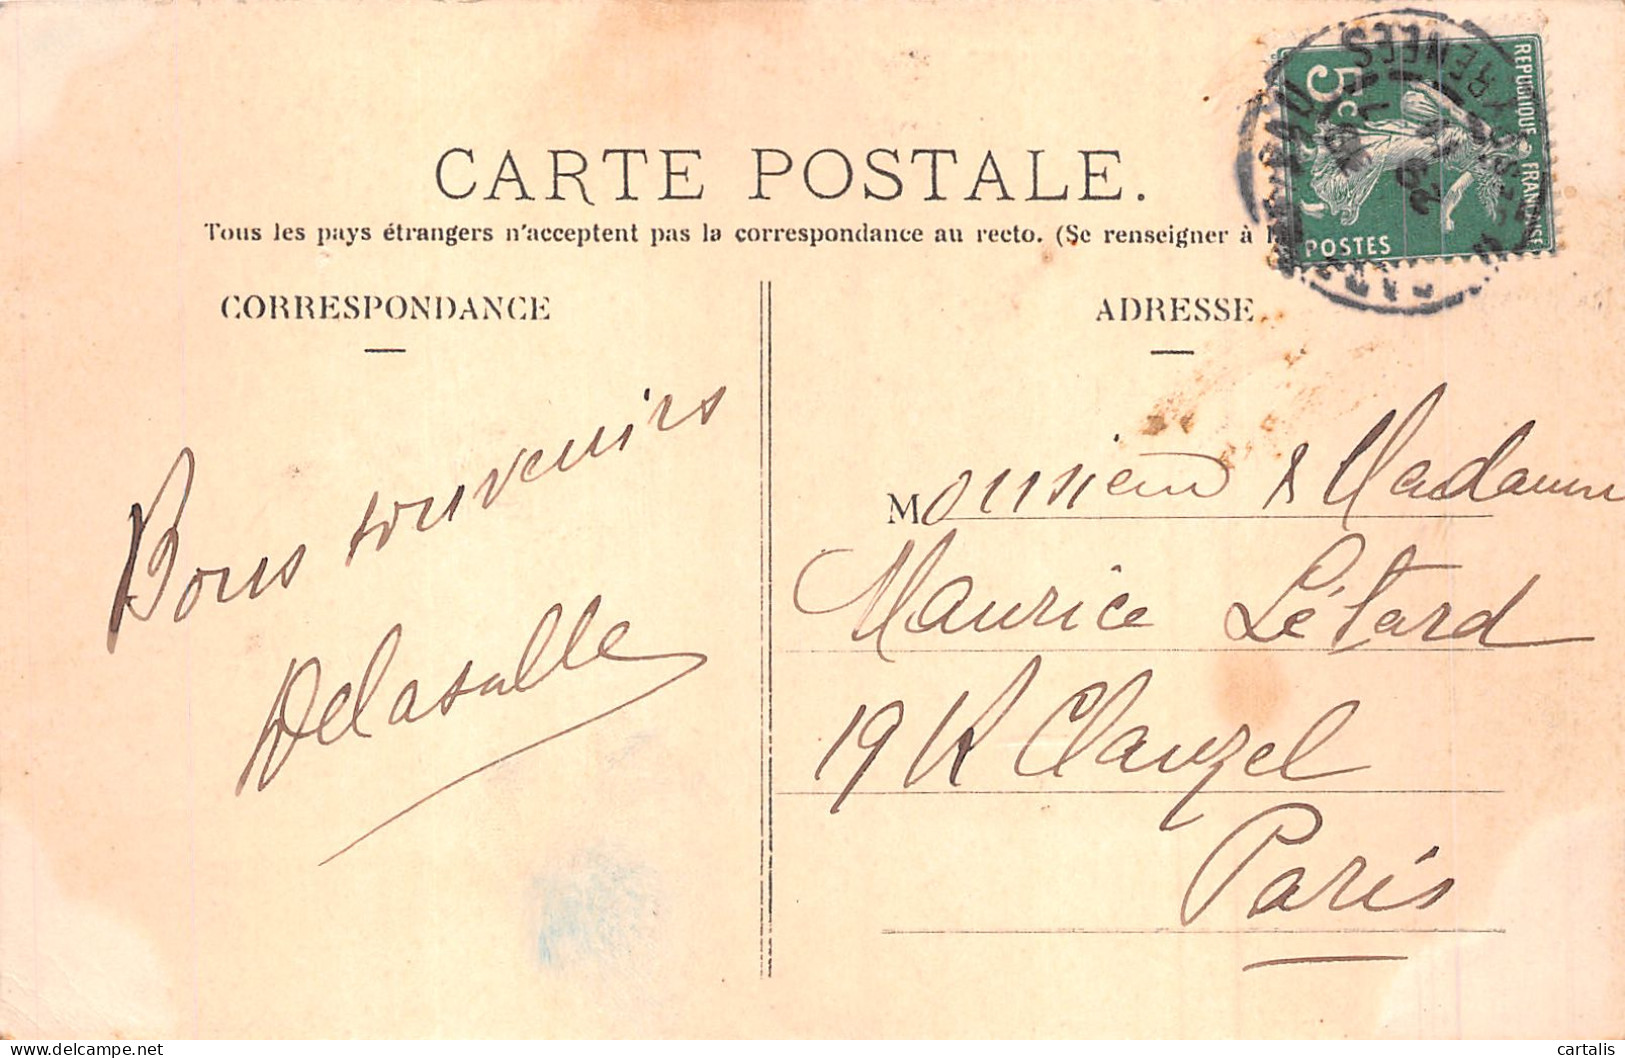 CARTE POSTALE.
Tous les pays étrangers n'acceptent pas la correspondance au recto. (Se renseigner à
CORRESPONDANCE
ADRESSE
Bons souvenirs
Delasalle
Monsieur & Madame
Maurice Létard
19 R Clauzel
Paris
5c
REPUBLIQUE FRANÇAISE
POSTES
PAU
PYRENEES
cartalis
delcampe.net